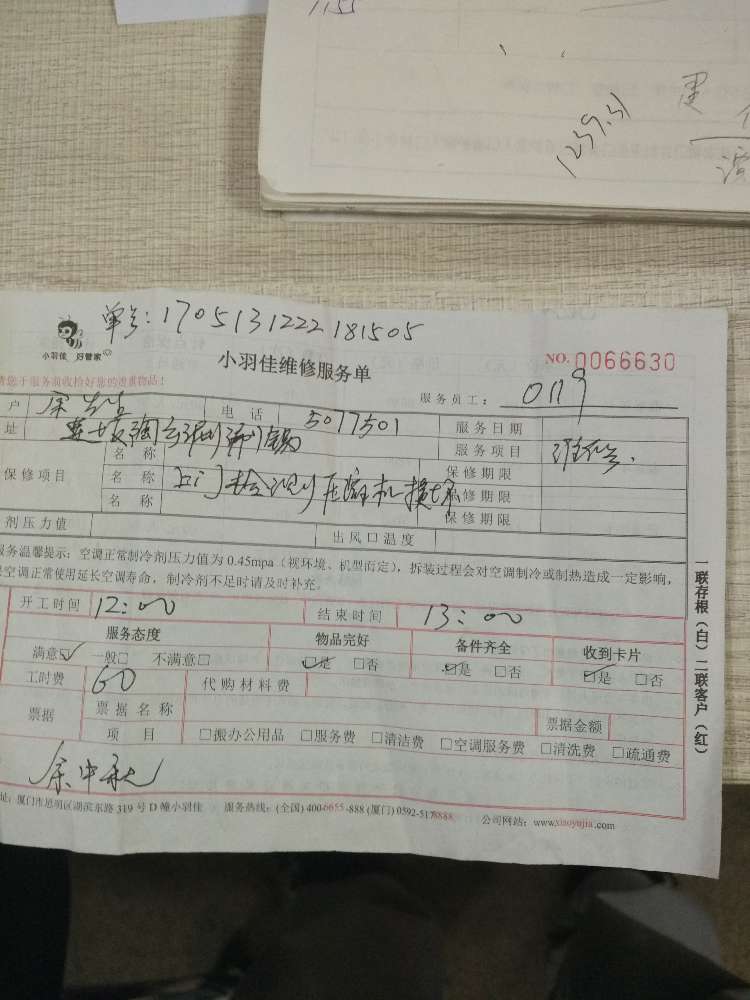 1155
1239.51
单号:1705131222181505
小羽佳 好管家
小羽佳维修服务单
NO.0066630
请您于服务前收拾好您的贵重物品!
服务员工: 0119
户
电话 5077501
服务日期
址
服务项目
名称
保修期限
保修项目
名称 上门检测压缩机损坏
保修期限
名称
保修期限
剂压力值
出风口温度
服务温馨提示:空调正常制冷剂压力值为 0.45mpa(视环境、机型而定),拆装过程会对空调制冷或制热造成一定影响,
空调正常使用延长空调寿命,制冷剂不足时请及时补充。
开工时间 12:00
结束时间 13:00
服务态度 物品完好 备件齐全 收到卡片
满意☑ 一般□ 不满意□ ☑是 □否 ☑是 □否 ☑是 □否
工时费 60 代购材料费
票据
票据名称
票据金额
项目 □搬办公用品 □服务费 □清洁费 □空调服务费 □清洗费 □疏通费
余中秋
址:厦门市思明区湖滨东路 319 号 D 幢小羽佳 服务热线:(全国) 400-6655-888 (厦门) 0592-5178888 公司网站:www.xiaoyujia.com
一联存根(白)二联客户(红)